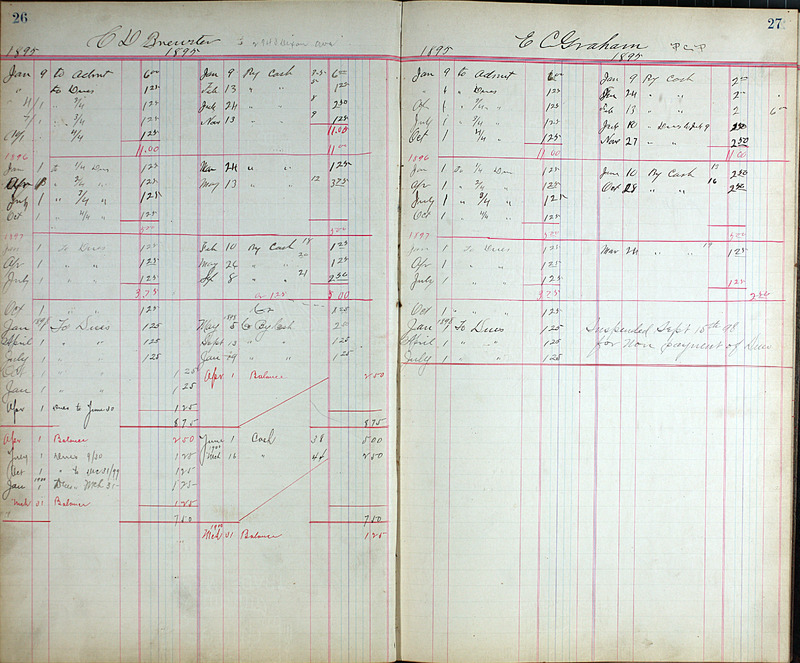 26
C D Brewster to
1895 1895
Jan 9 to Admt 6 00 Jan 9 By Cash 6 00
" to Dues 1 25 Feb 13 " " 1 25
" 1/4 1 25 July 24 " " 8 2 50
1 " 3/4 1 25 Nov 13 " " 9 1 25
1 4/4 1 25 11.00
11.00 11 00
1896
Jan 1 to 1/4 Dues 1 25 Mar 24 " " 1 25
Apr 1 " 2/4 " 1 25 May 13 " " 12 3 75
July 1 " 3/4 " 1 25
Oct 1 " 4/4 " 1 25
5 00 5 00
1897
Jan 1 To Dues 1 25 Feb 10 By Cash 18 1 25
Apr 1 " " 1 25 May 26 " " 20 1 25
July 1 " " 1 25 Sept 8 " " 21 2 50
3.75 or 1 25 5 00
Oct 1 " " 1 25 Cr 1 25
Jan 1898 1 To Dues 1 25 May 1898 5 By Cash 2 50
April 1 " " 1 25 Sept 13 " " 1 25
July 1 " " 1 25 Jan 29 " " 1 25
Oct 1 " " 1 25 Apr 1 Balance 2 50
Jan 1 " " 1 25
Apr 1 Dues to June 30 1 25
8 75 8 75
Apr 1 Balance 2 50 June 1 Cash 38 5 00
July 1 Dues 9/30 1 25 1900 Mch 16 " 44 2 50
Oct 1 " to Dec 31/99 1 25
Jan 1900 1 Dues Mch 31 1 25
Mch 31 Balance 1 25
7 50 7 50
1900 Mch 31 Balance 1 25
27
E C Graham
1895 1895
Jan 9 to Admt 6 00 Jan 9 By Cash 2 00
" " Dues 1 25 Jan 24 " " 2 00
Apr 1 " 2/4 " 1 25 Feb 13 " " 2 6 00
July 1 " 3/4 " 1 25 July 10 " Dues to July 9 2 50
Oct 1 4/4 " 1 25 Nov 27 " " 2 50
11.00 11 00
1896
Jan 1 To 1/4 Dues 1 25 June 10 By Cash 13 2 50
Apr 1 " 2/4 " 1 25 Oct 28 " " 16 2 50
July 1 " 3/4 " 1 25
Oct 1 " 4/4 " 1 25
5 00 5 00
1897
Jan 1 To Dues 1 25 Mar 24 " " 19 1 25
Apr 1 " " 1 25
July 1 " " 1 25 1 25
3.75 2 50
Oct 1 " " 1 25
Jan 1898 1 To Dues 1 25 Suspended Sept 15th 98
April 1 " " 1 25 for Non payment of Dues
July 1 " " 1 25